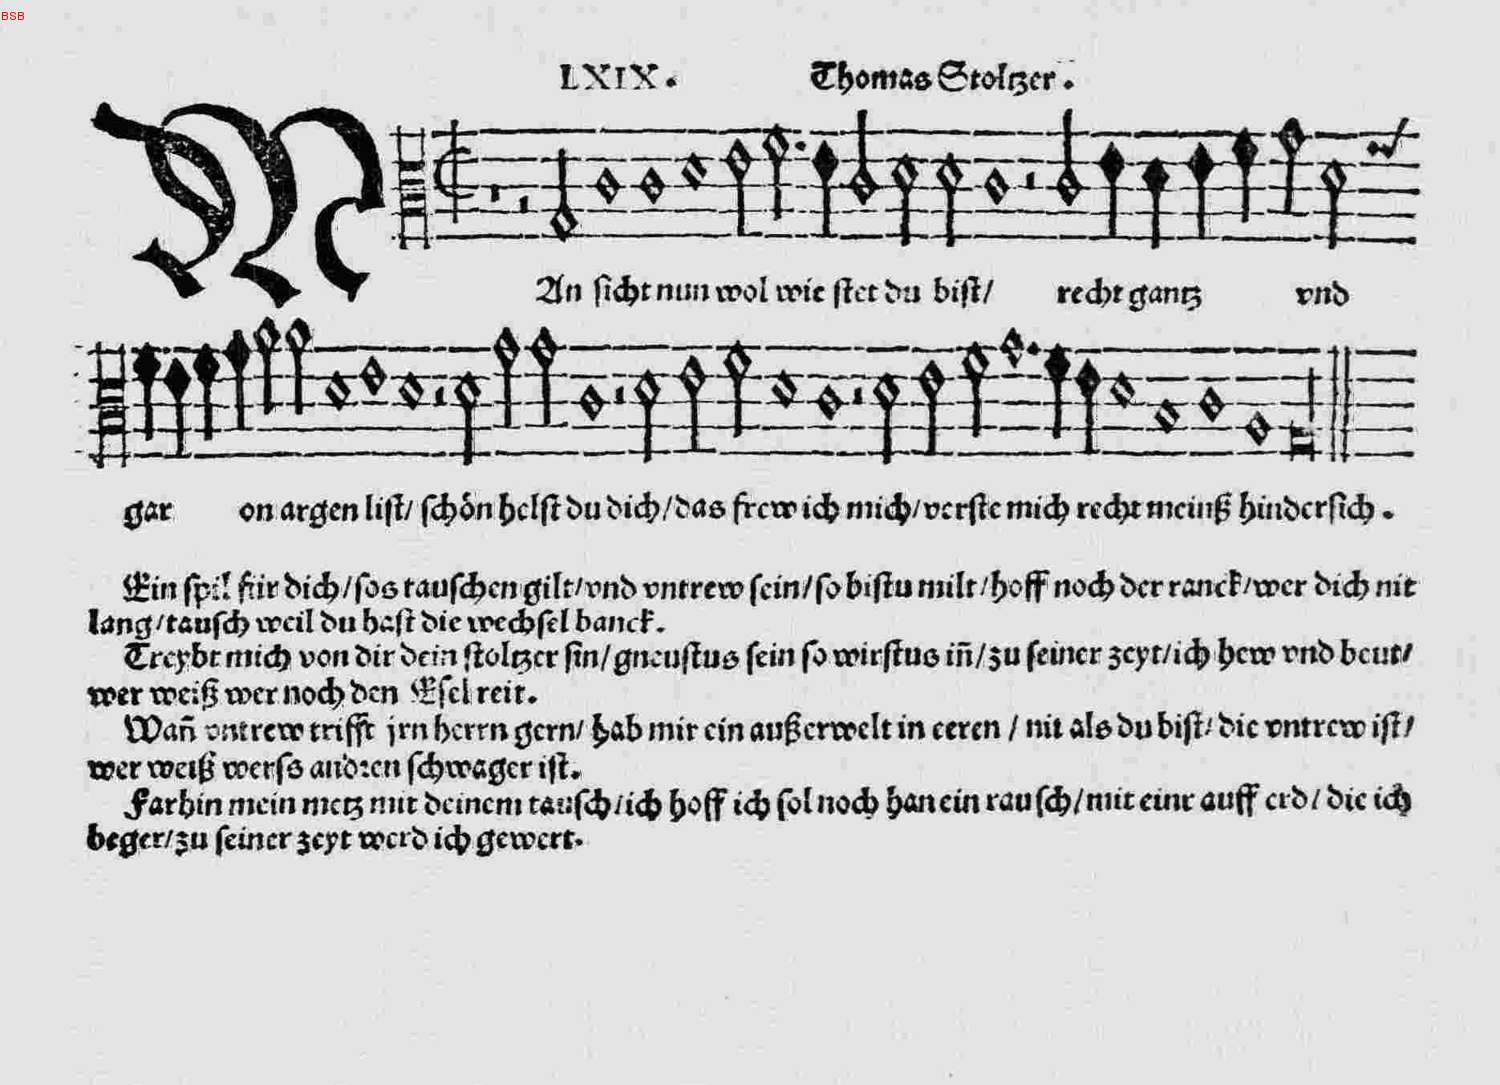 BSB
LXIX. Thomas Stoltzer.
MAn sicht nun wol wie stet du bist/ recht gantz vnd
gar on argen list/ schön helst du dich/das frew ich mich/verste mich recht meinß hindersich.
Ein spil für dich/sos tauschen gilt/vnd vntrew sein/so bistu milt/hoff noch der ranck/wer dich nit
lang/tausch weil du hast die wechsel banck.
Treybt mich von dir dein stoltzer sin/gneustus sein so wirstus iñ/zu seiner zeyt/ich hew vnd beut/
wer weiß wer noch den Esel reit.
Wañ vntrew trifft jrn herrn gern/ hab mir ein außerwelt in eeren / nit als du bist/ die vntrew ist/
wer weiß werss andren schwager ist.
Farhin mein metz mit deinem tausch/ich hoff ich sol noch han ein rausch/mit einr auff erd/ die ich
beger/zu seiner zeyt werd ich gewert.